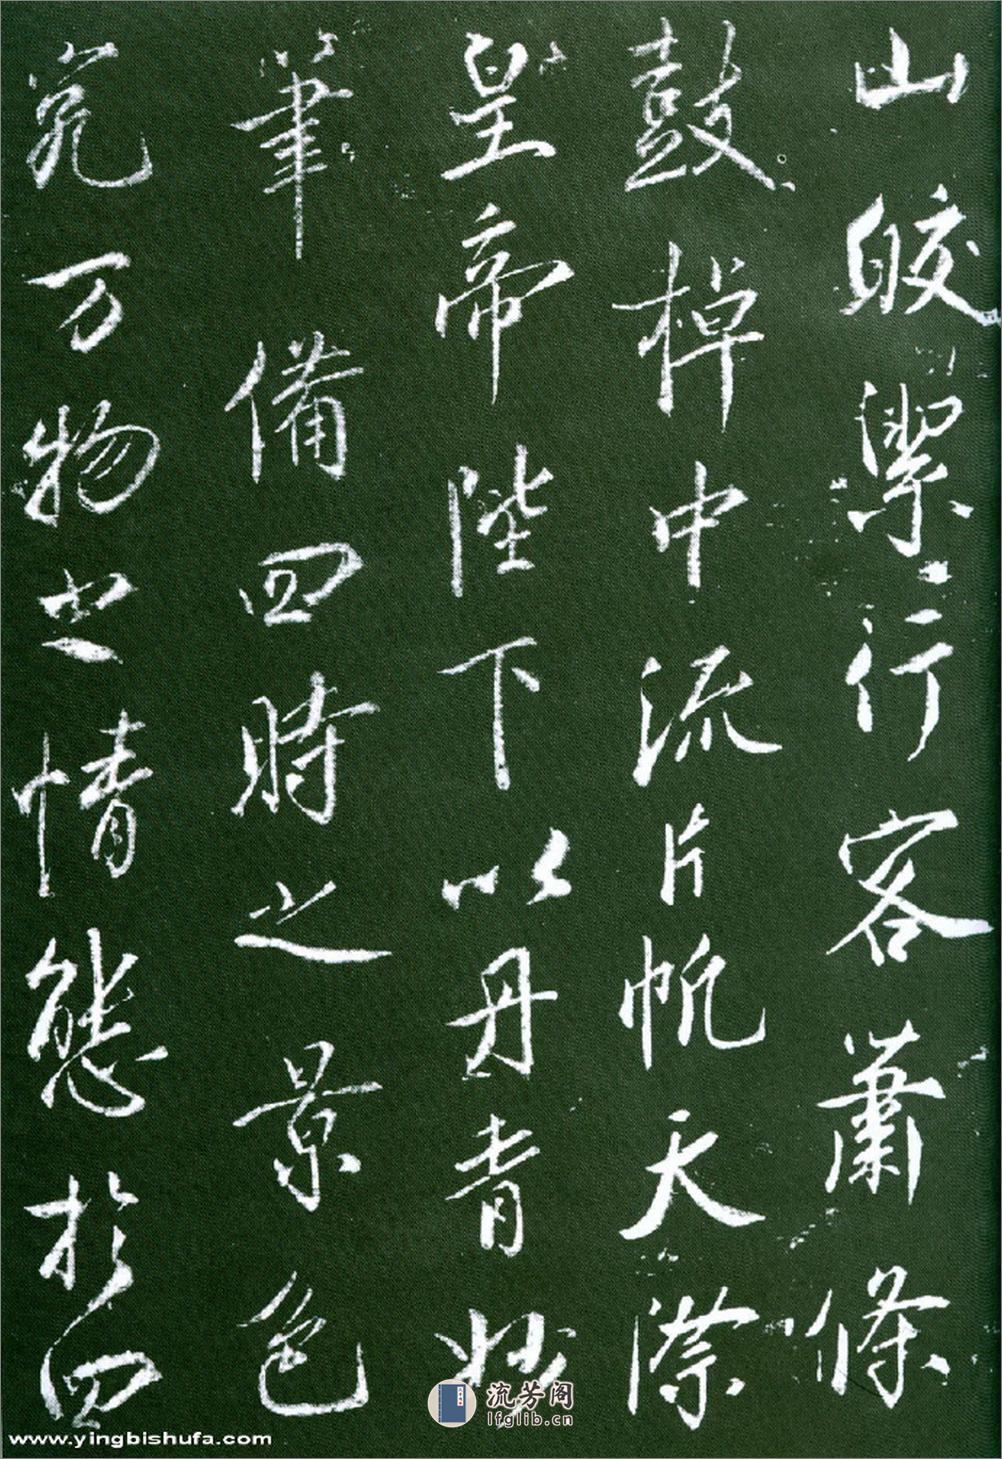 山皎潔行客蕭條
鼓棹中流片帆天際
皇帝陛下以丹青妙
筆備四時之景色
究万物之情態於四
流芳阁
lfglib.cn
www.yingbishufa.com